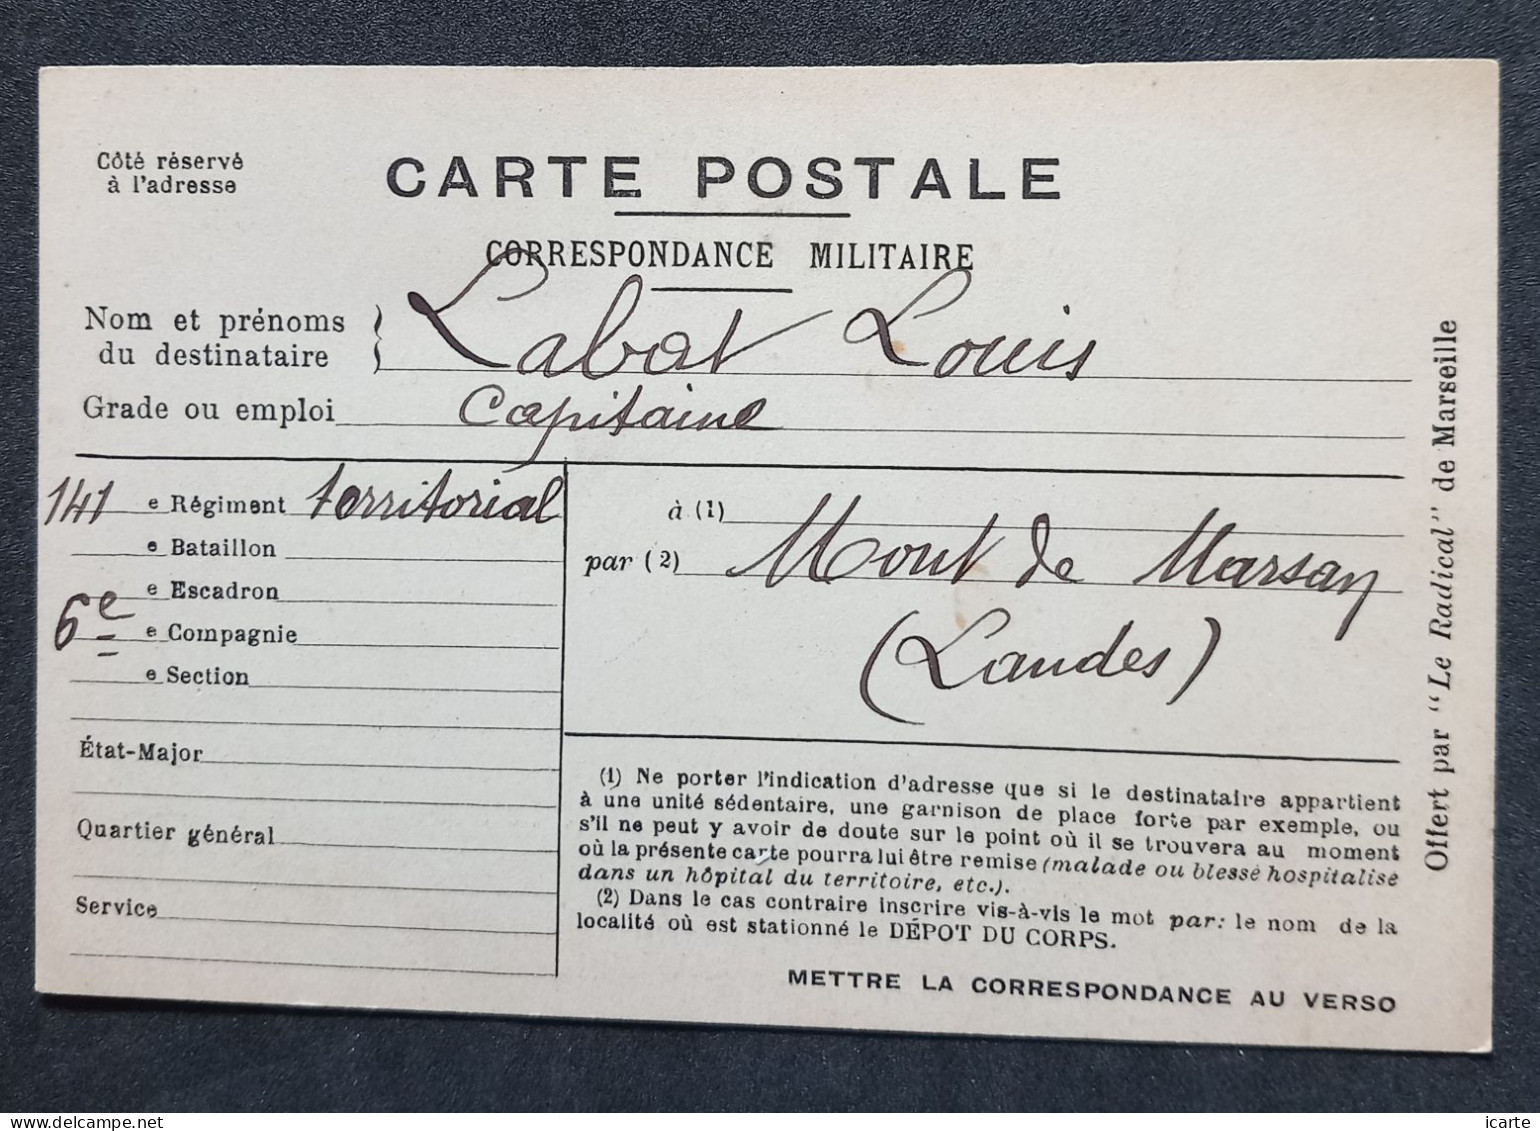 Côté réservé
à l'adresse
CARTE POSTALE
CORRESPONDANCE MILITAIRE
Nom et prénoms
du destinataire
Labat Louis
Grade ou emploi Capitaine
141 e Régiment territorial
e Bataillon
e Escadron
6e e Compagnie
e Section
État-Major
Quartier général
Service
à (1)
par (2) Mont de Marsan
(Landes)
(1) Ne porter l'indication d'adresse que si le destinataire appartient
à une unité sédentaire, une garnison de place forte par exemple, ou
s'il ne peut y avoir de doute sur le point où il se trouvera au moment
où la présente carte pourra lui être remise (malade ou blessé hospitalisé
dans un hôpital du territoire, etc.).
(2) Dans le cas contraire inscrire vis-à-vis le mot par: le nom de la
localité où est stationné le DÉPOT DU CORPS.
METTRE LA CORRESPONDANCE AU VERSO
Offert par "Le Radical" de Marseille
icarte